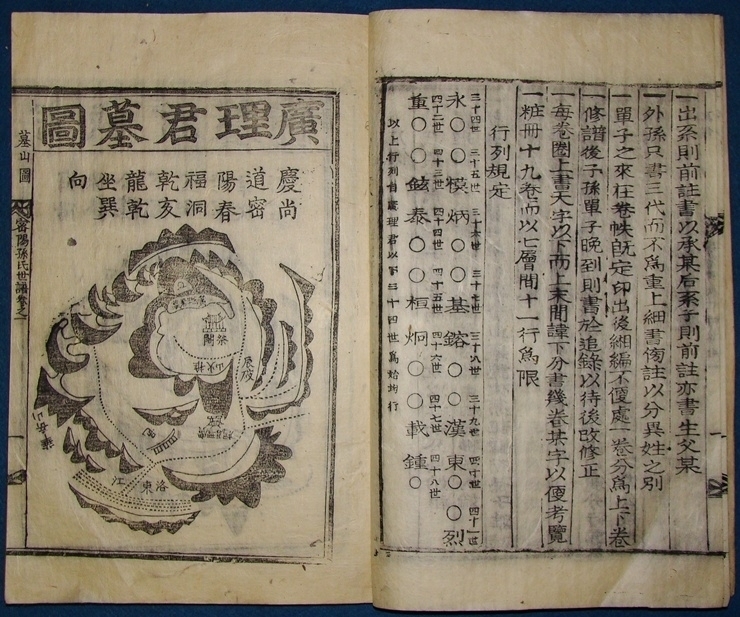 一出系則前註書以承某后系子則前註亦書生父某
一外孫只書三代而不爲重上細書傍註以分異姓之別
一單子之來在卷帙旣定印出後細編不便處一卷分爲上下卷
一修譜後子孫單子晚到則書於追錄以待後改修正
一每卷圈上書天字以下而上末間諱下分書幾卷某字以便考覽
一粧冊十九卷而以七層間十一行爲限
行列規定
三十四世 三十五世 三十六世 三十七世 三十八世 三十九世 四十世 四十一世
永○ ○模 炳○ ○基 鎔○ ○漢 東○ ○烈
四十二世 四十三世 四十四世 四十五世 四十六世 四十七世 四十八世
重○ ○鉉 泰○ ○桓 炯○ ○載 鍾○
以上行列自廣理君以下三十四世爲始均行
廣理君墓圖
慶尙
道密
陽春
福洞
乾亥
龍乾
坐巽
向
洛東
江
墓山圖
密陽孫氏世譜卷之一